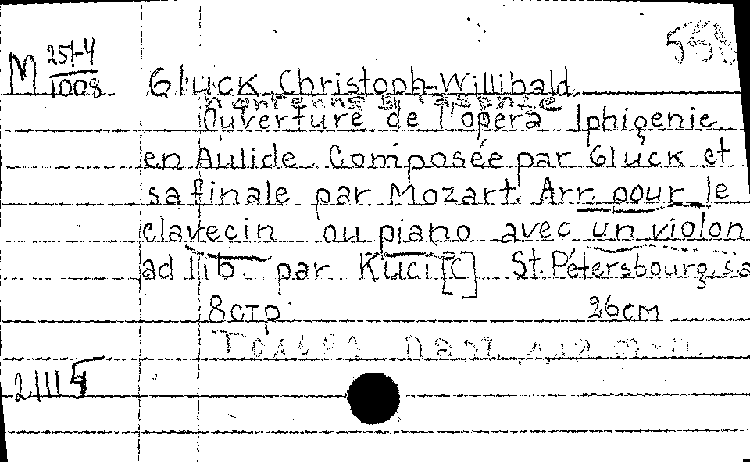 M 251-4
1008
558
Gluck, Christoph-Willibald.
Ouverture de l'opera Iphigenie
en Aulide. Composée par Gluck et
sa finale par Mozart. Arr. pour le
clavecin ou piano avec un violon
ad lib. par Kuci[c] St. Pétersbourg, s.a
8 стр 26 см
21115